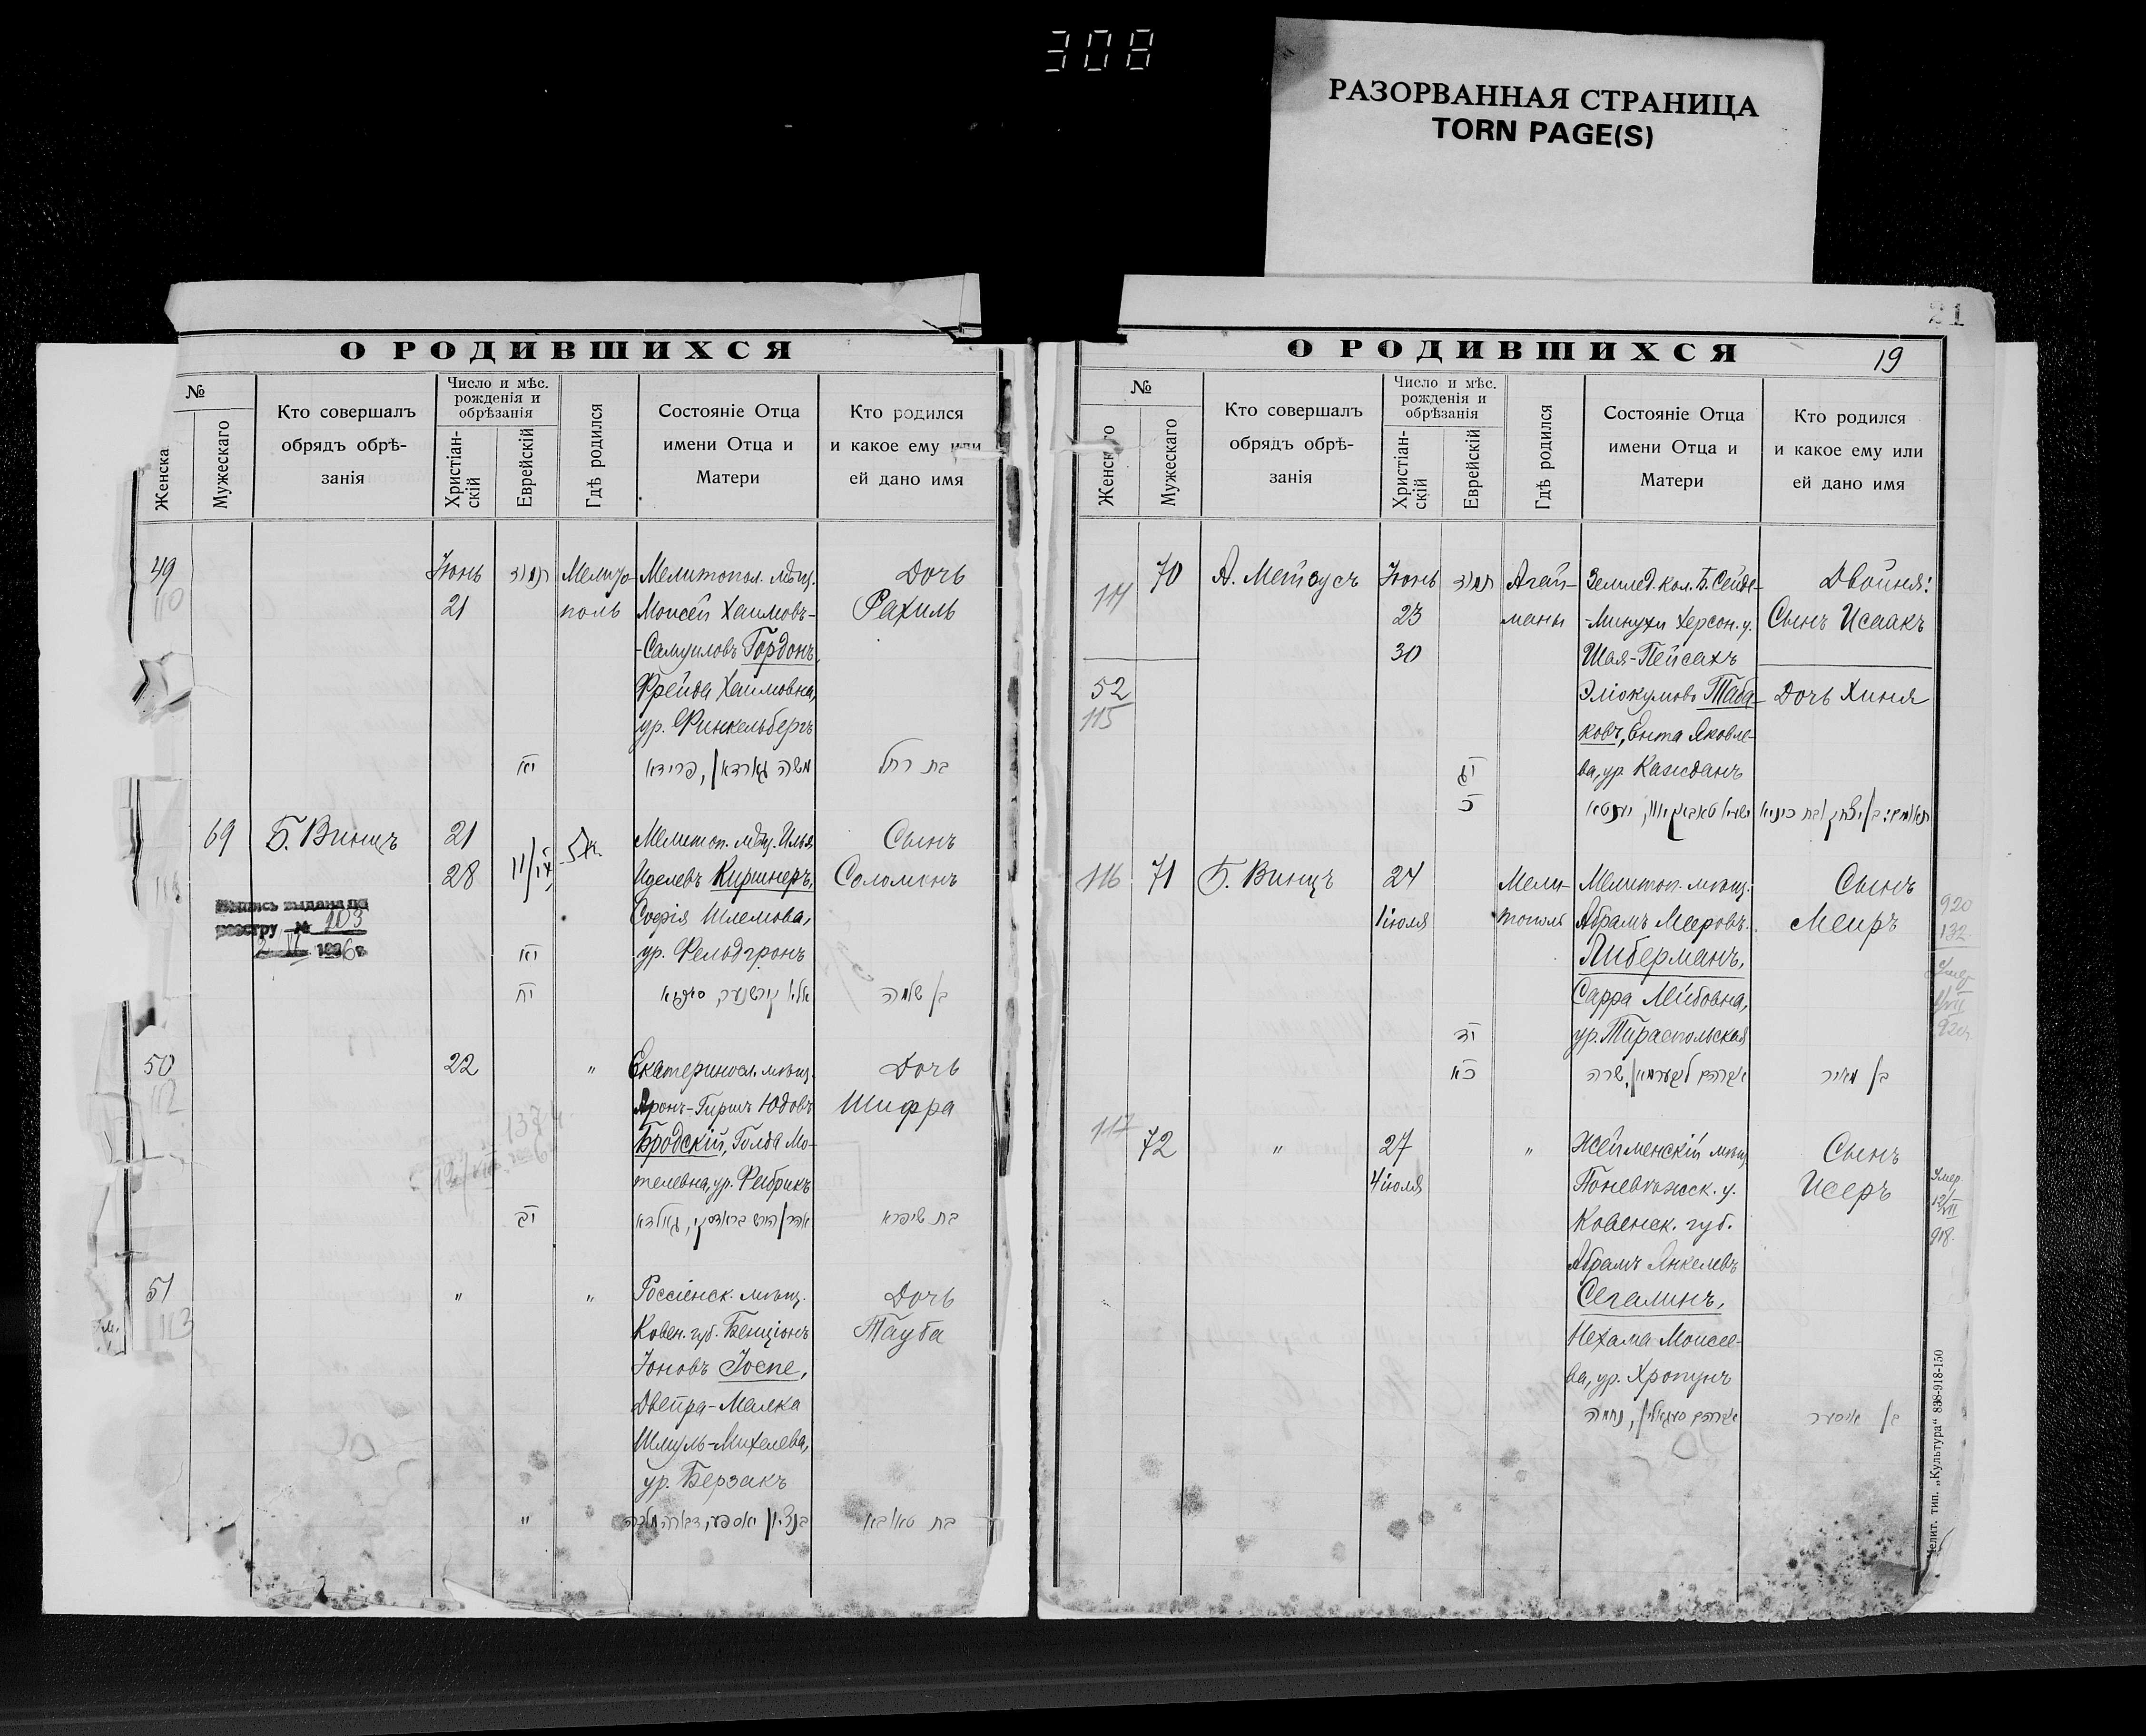 308
РАЗОРВАННАЯ СТРАНИЦА
TORN PAGE(S)
О РОДИВШИХСЯ
№
Женска
Мужескаго
Кто совершалъ
обрядъ обрѣ-
занія
Число и мѣс.
рожденія и
обрѣзанія
Христіан-
скій
Еврейскій
Гдѣ родился
Состояніе Отца
имени Отца и
Матери
Кто родился
и какое ему или
ей дано имя
49
110
Іюнь
21
תמוז
יא
Мелито-
поль
Мелитопол. мѣщ.
Моисей Хаимовъ-
-Самуиловъ Гордонъ,
Фрейда Хаимовна,
ур. Финкельбергъ
משה גארדאן, פריידא
Дочь
Рахиль
בת רחל
69
Б. Винцъ
21
28
יא
יח
Мелитоп. мѣщ. Илья
Иделевъ Киршнеръ,
Софія Шлемова,
ур. Фельдгронъ
Сынъ
Соломонъ
בן שלמה
реестру № 103
50
112
22
יב
"
Екатериносл. мѣщ.
Аронъ-Гиршъ Юдовъ
Бродскій, Голда Мо-
телевна, ур. Фабрикъ
אהרן הירש בראדסקי, גאלדא
Дочь
Шифра
בת שיפרא
51
113
"
"
"
Россіенск. мѣщ.
Ковен. губ. Бенціонъ
Іоновъ Іоспе,
Двейра-Малка
Шмуль-Михелева,
ур. Берзакъ
Дочь
Тауба
בת טאובא
21
О РОДИВШИХСЯ
19
№
Мужескаго
Кто совершалъ
обрядъ обрѣ-
занія
Число и мѣс.
рожденія и
обрѣзанія
Христіан-
скій
Еврейскій
Гдѣ родился
Состояніе Отца
имени Отца и
Матери
Кто родился
и какое ему или
ей дано имя
114
70
52
115
А. Мейзусъ
Іюнь
23
30
תמוז
יג
כ
Агай-
маны
Землед. кол. Б. Сейде-
-Минухи Херсон. у.
Шая-Пейсахъ
Эліокумовъ Таба-
ковъ, Ента Яковле-
ва, ур. Кажданъ
Двойня:
Сынъ Исаакъ
Дочь Хиня
116
71
Б. Винцъ
24
1 іюля
יד
כא
Мели-
тополь
Мелитоп. мѣщ.
Абрамъ Мееровъ
Либерманъ,
Сарра Лейбовна,
ур. Тираспольская
אברהם ליבערמאן, שרה
Сынъ
Меиръ
בן מאיר
920
132
117
72
"
27
4 іюля
"
Жеймельскій мѣщ.
Поневѣжск. у.
Ковенск. губ.
Абрамъ Янкелевъ
Сегалинъ,
Нехама Моисее-
ва, ур. Хропунъ
אברהם סעגאלין, נחמה
Сынъ
Исеръ
בן איסער
Умер.
12/VII
918.
Мелит. тип. „Культура" 838-918-150